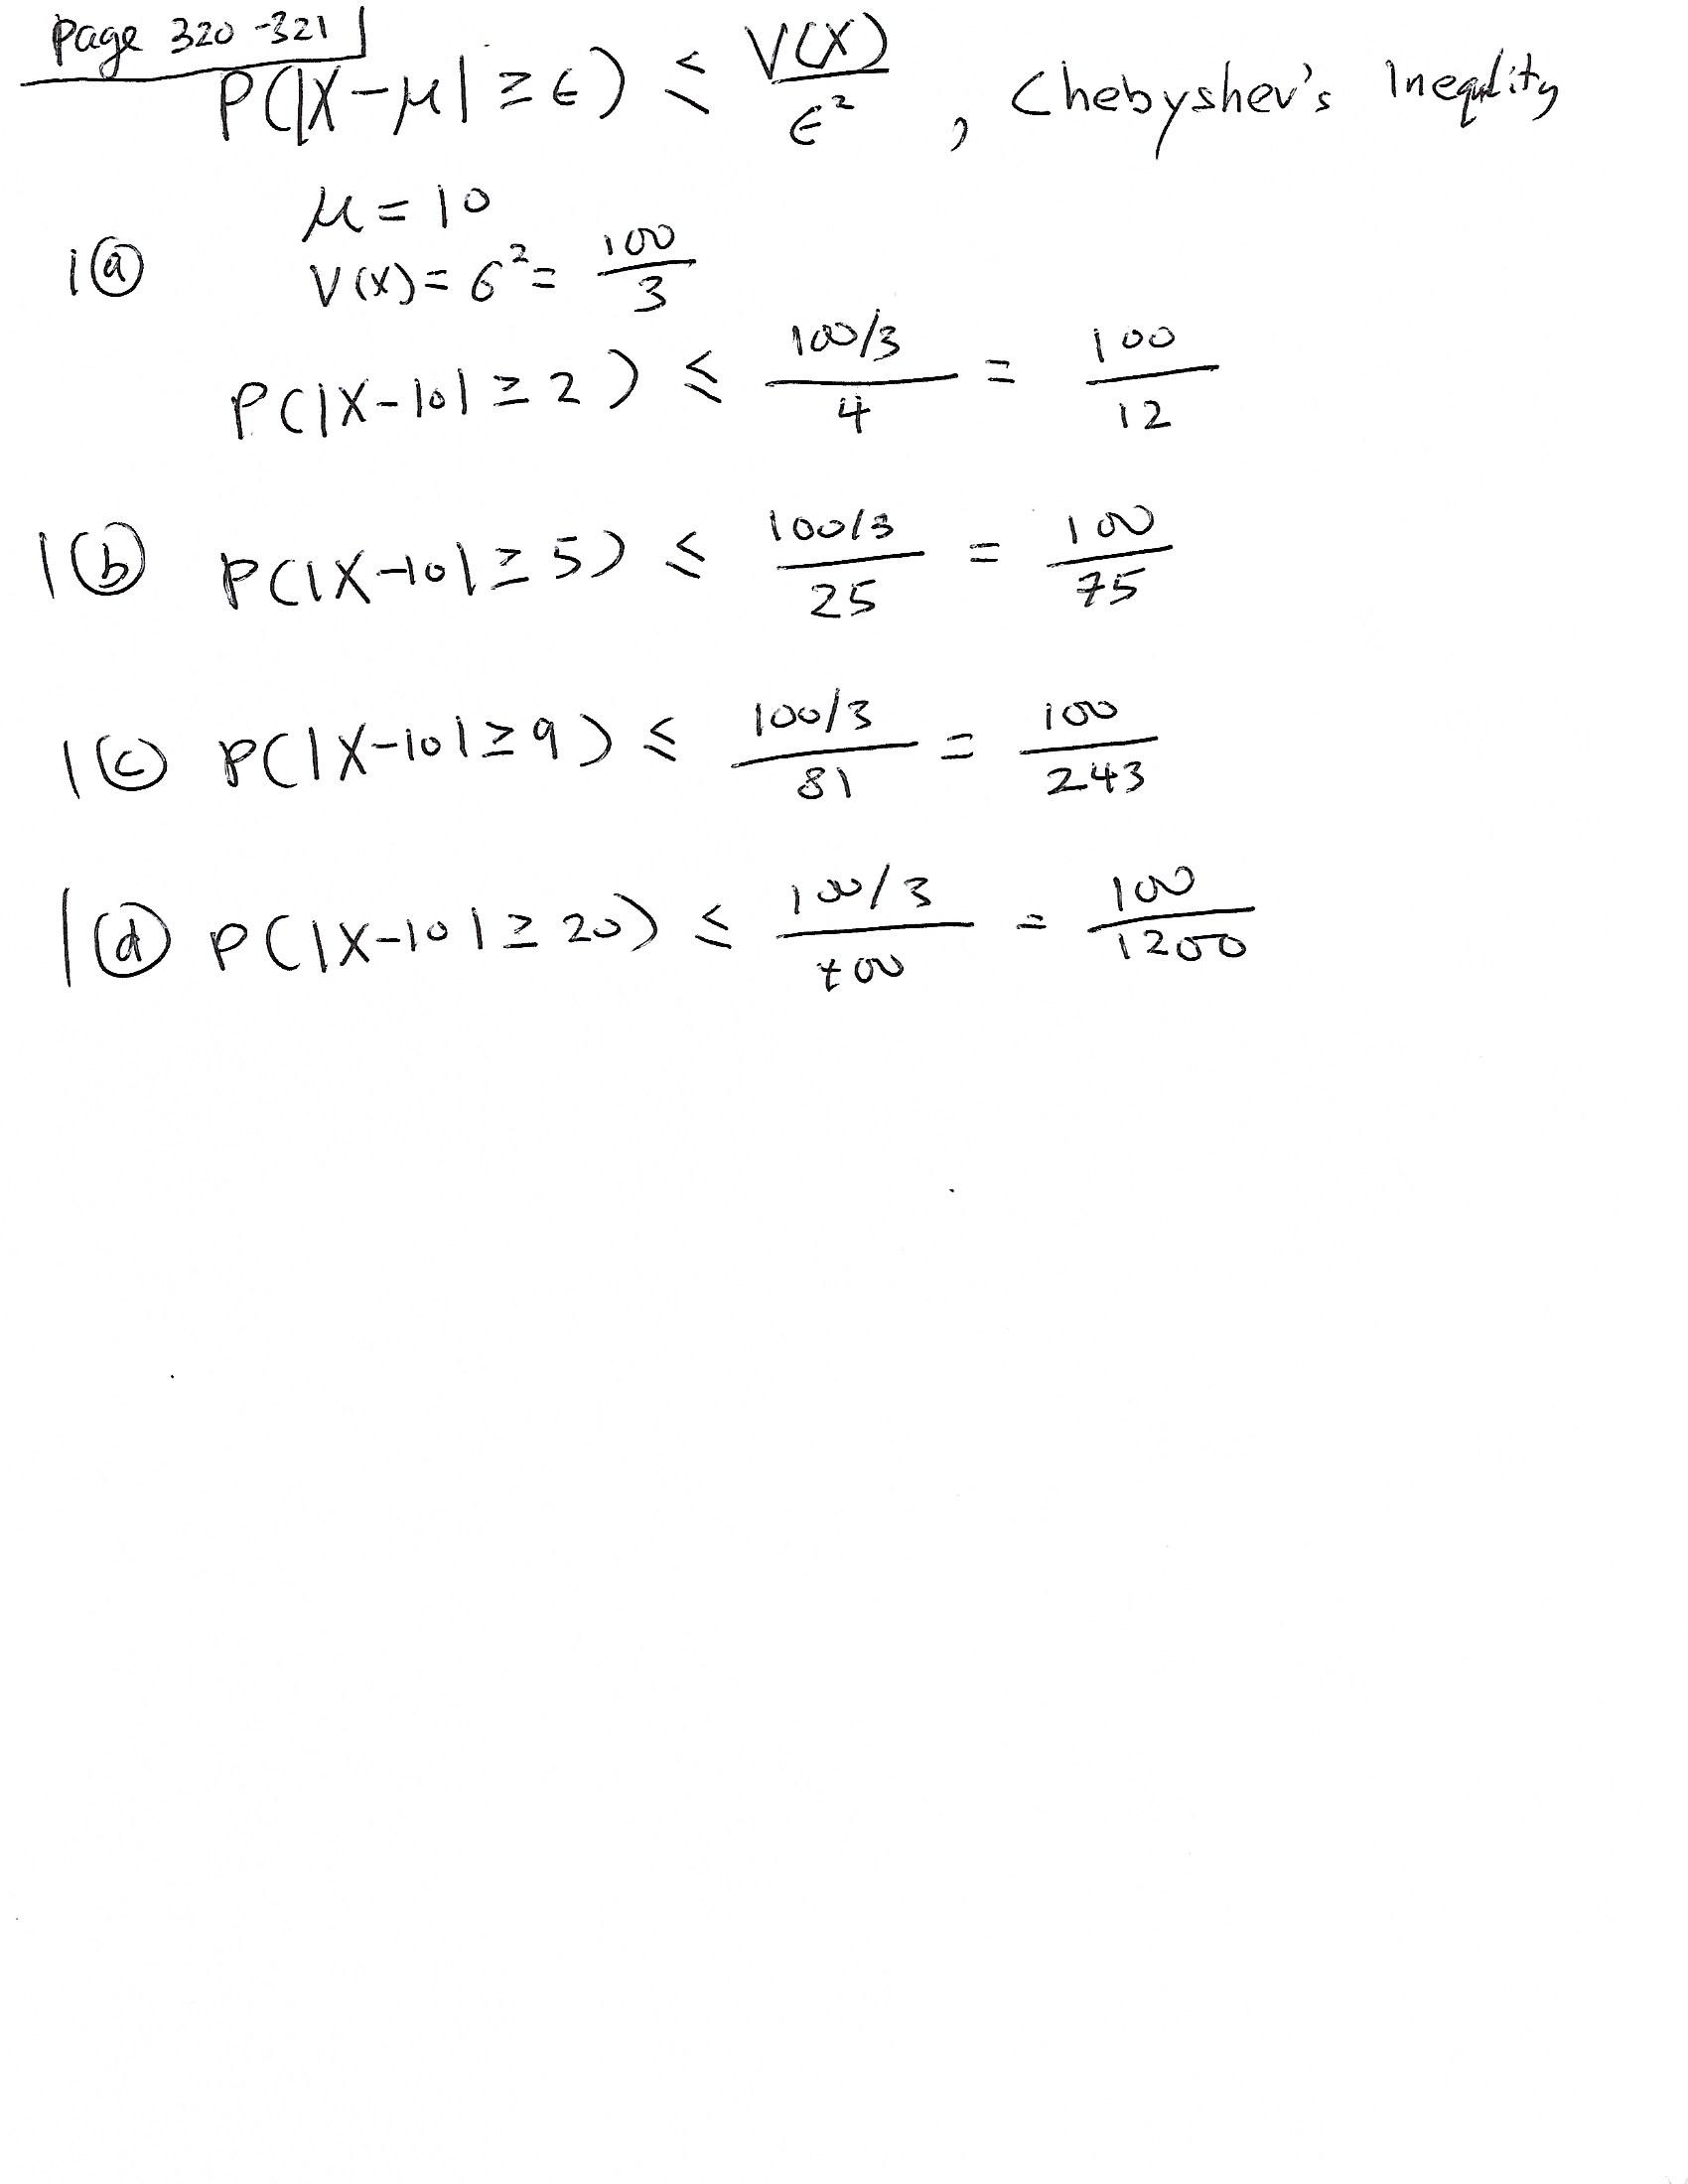 Page 320-321
P(|X-μ| ≥ ε) ≤ V(X)/ε² , Chebyshev's Ineqality
μ = 10
1ⓐ V(X) = σ² = 100/3
P(|X-10| ≥ 2) ≤ (100/3)/4 = 100/12
1ⓑ P(|X-10| ≥ 5) ≤ (100/3)/25 = 100/75
1ⓒ P(|X-10| ≥ 9) ≤ (100/3)/81 = 100/243
1ⓓ P(|X-10| ≥ 20) ≤ (100/3)/400 = 100/1200